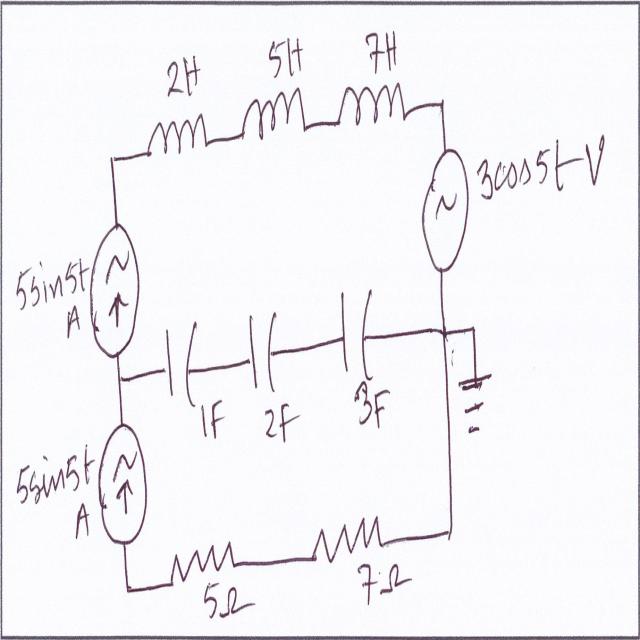 2H 5H 7H
3cos5t-V
5sin5t
A
1F 2F 3F
5sin5t
A
5Ω 7Ω